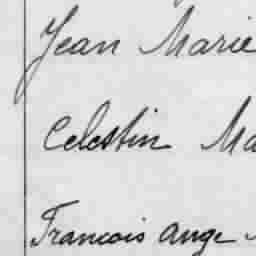 Jean Marie
Celestin Ma
Francois Ange